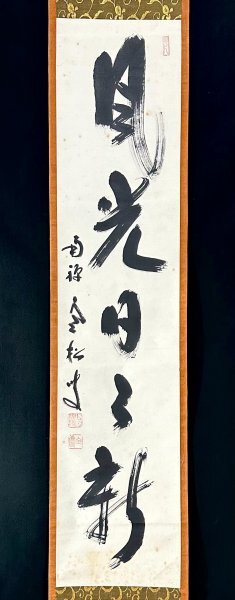 風光日々新
南禅 寒松叟